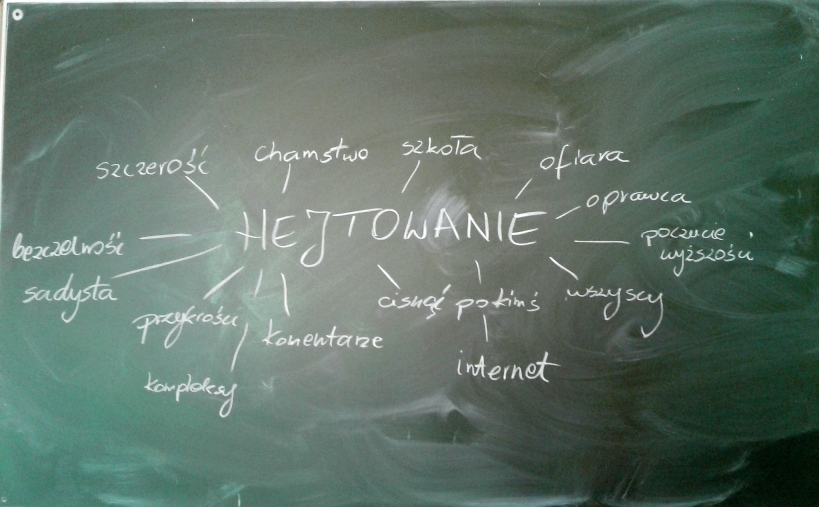 szczerość
chamstwo
szkoła
ofiara
oprawca
HEJTOWANIE
bezczelność
poczucie
wyższości
sadysta
przykrości
komentarze
cisnąć po kimś
wszyscy
kompleksy
internet